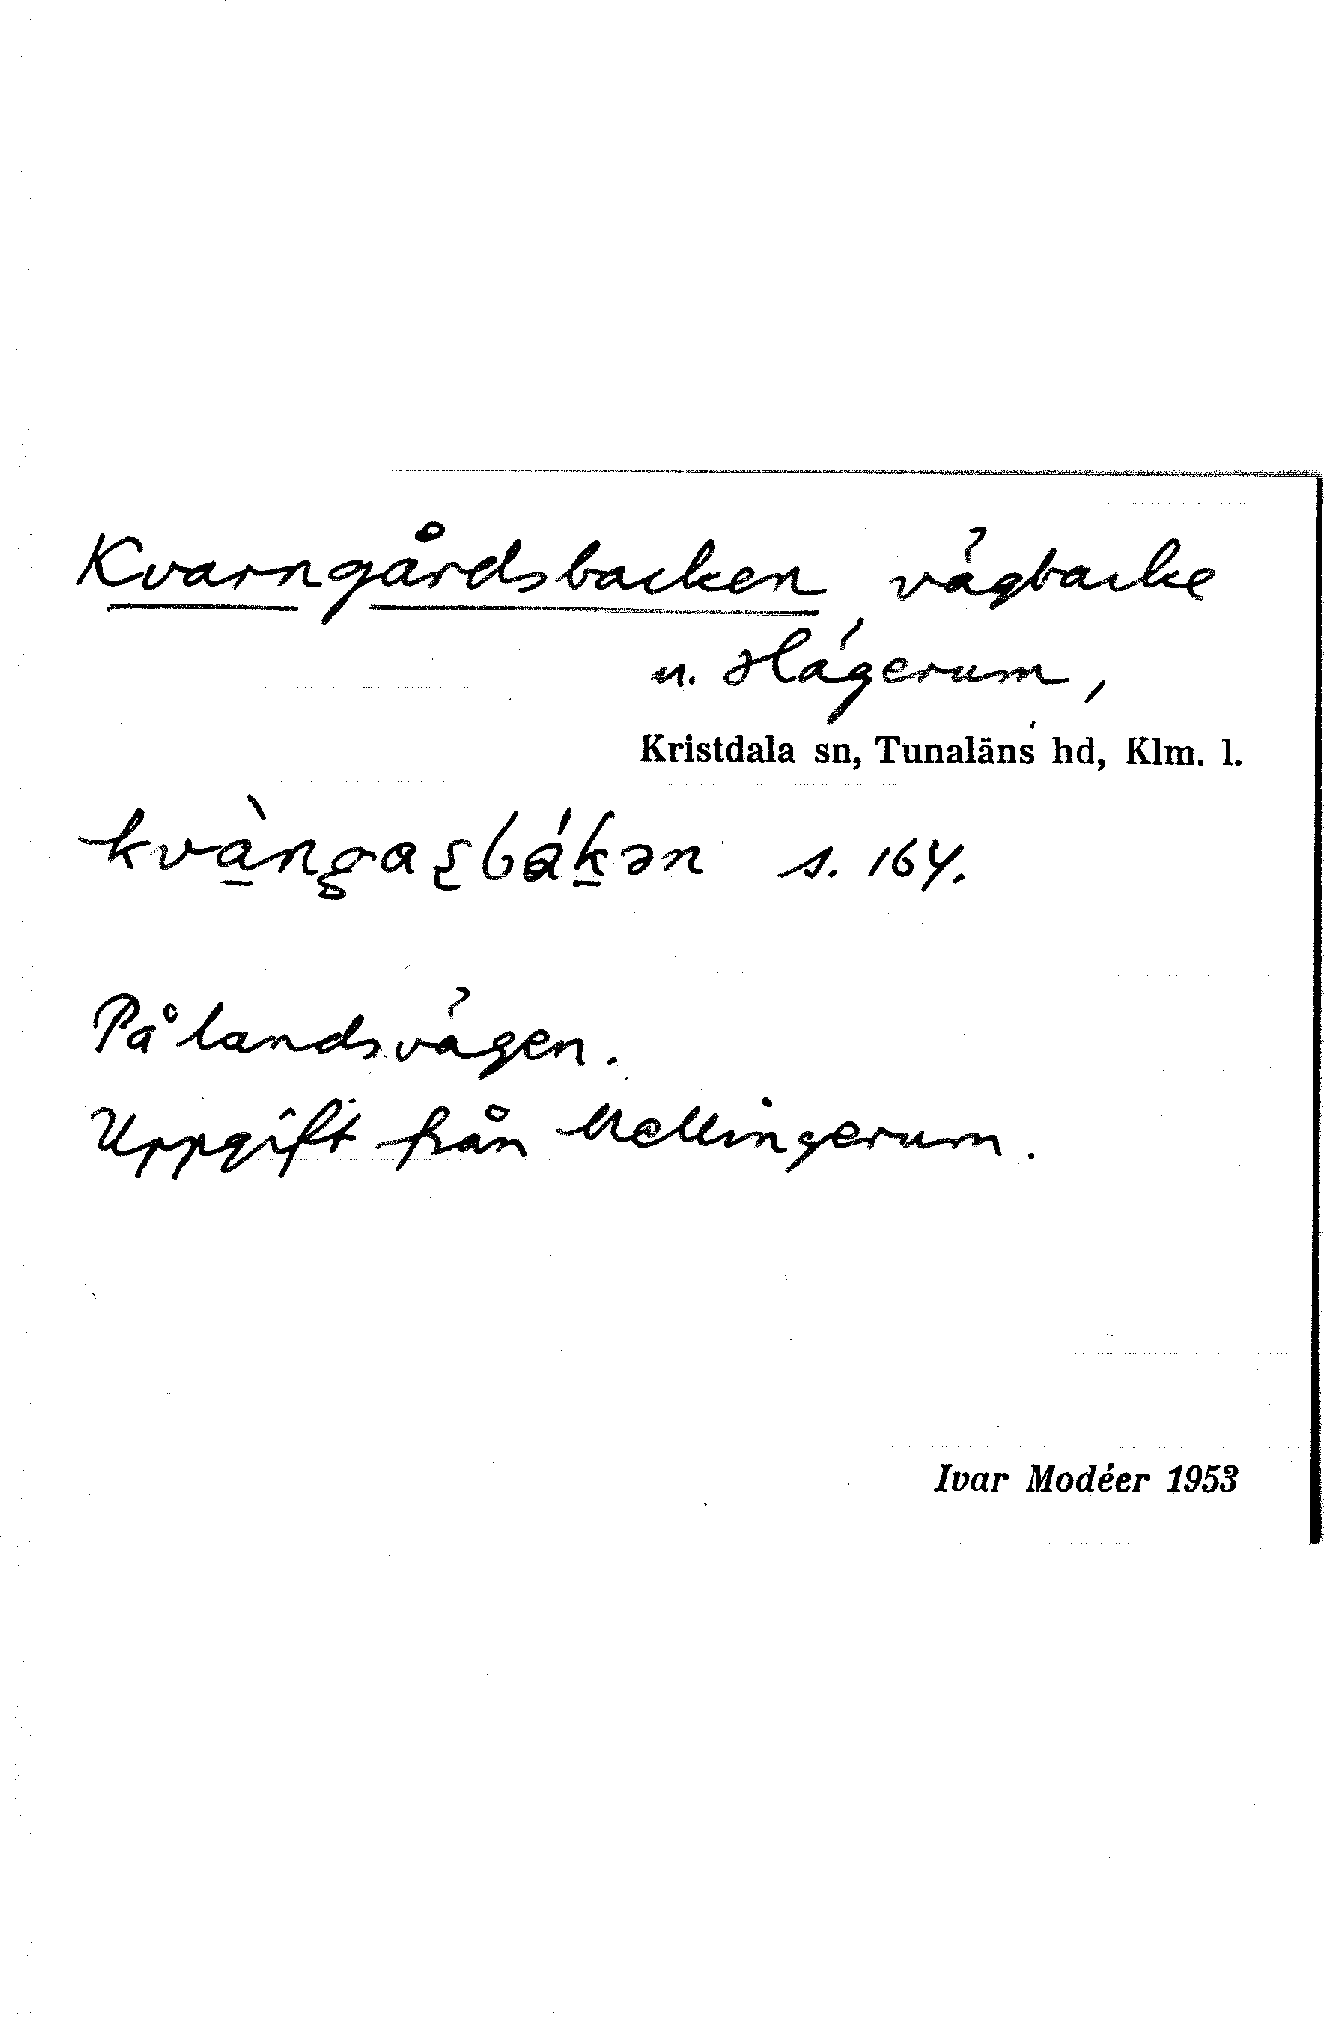 Kvarngårdsbacken vägbacke
u. Hägerum,
Kristdala sn, Tunaläns hd, Klm. l.
s. 164.
På landsvägen.
Uppgift från Mellingerum.
Ivar Modéer 1953